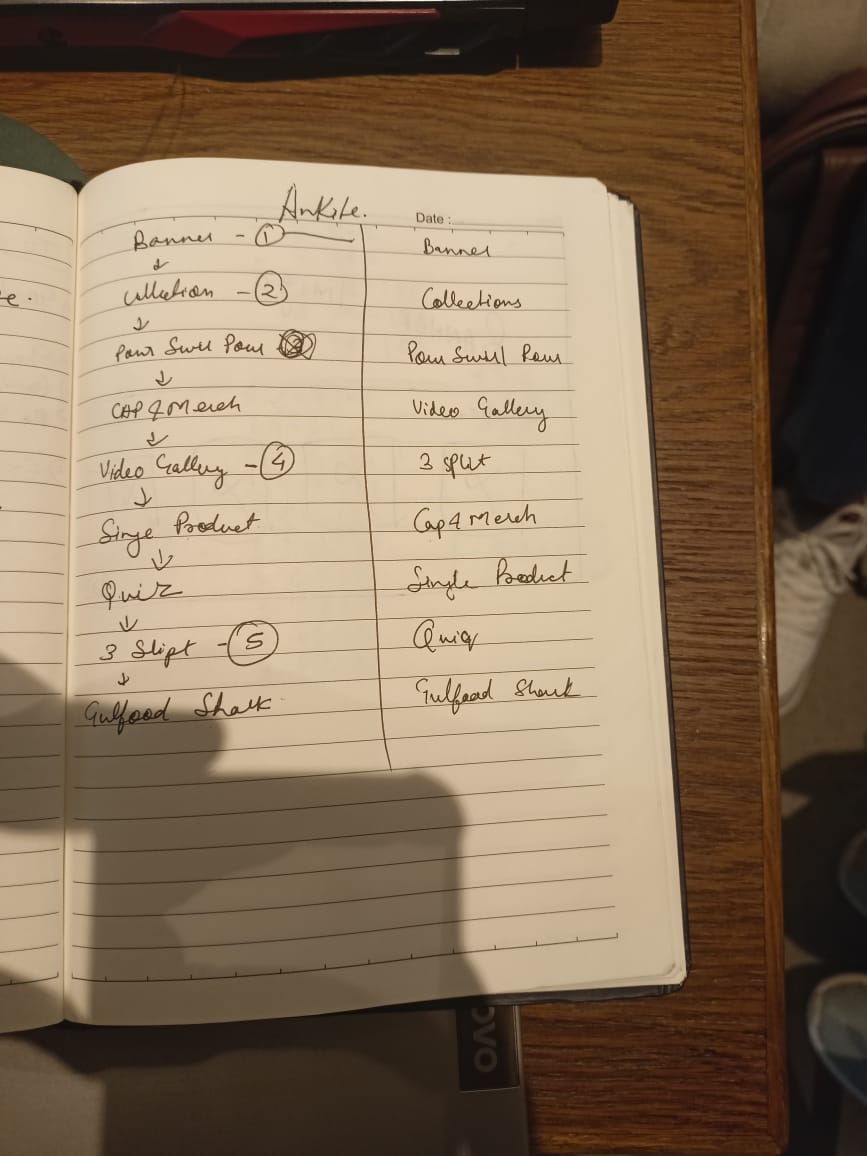 Ankite.
Date :
Banner - 1
Collection - 2
Pour Swirl Pour
CAP 4 Merch
Video Gallery - 4
Singe Product
Quiz
3 Slipt - 5
Gulfood Shark
Banner
Collections
Pour Swirl Pour
Video Gallery
3 split
Cap 4 Merch
Single Product
Quiz
Gulfood Shark
e.
OVO